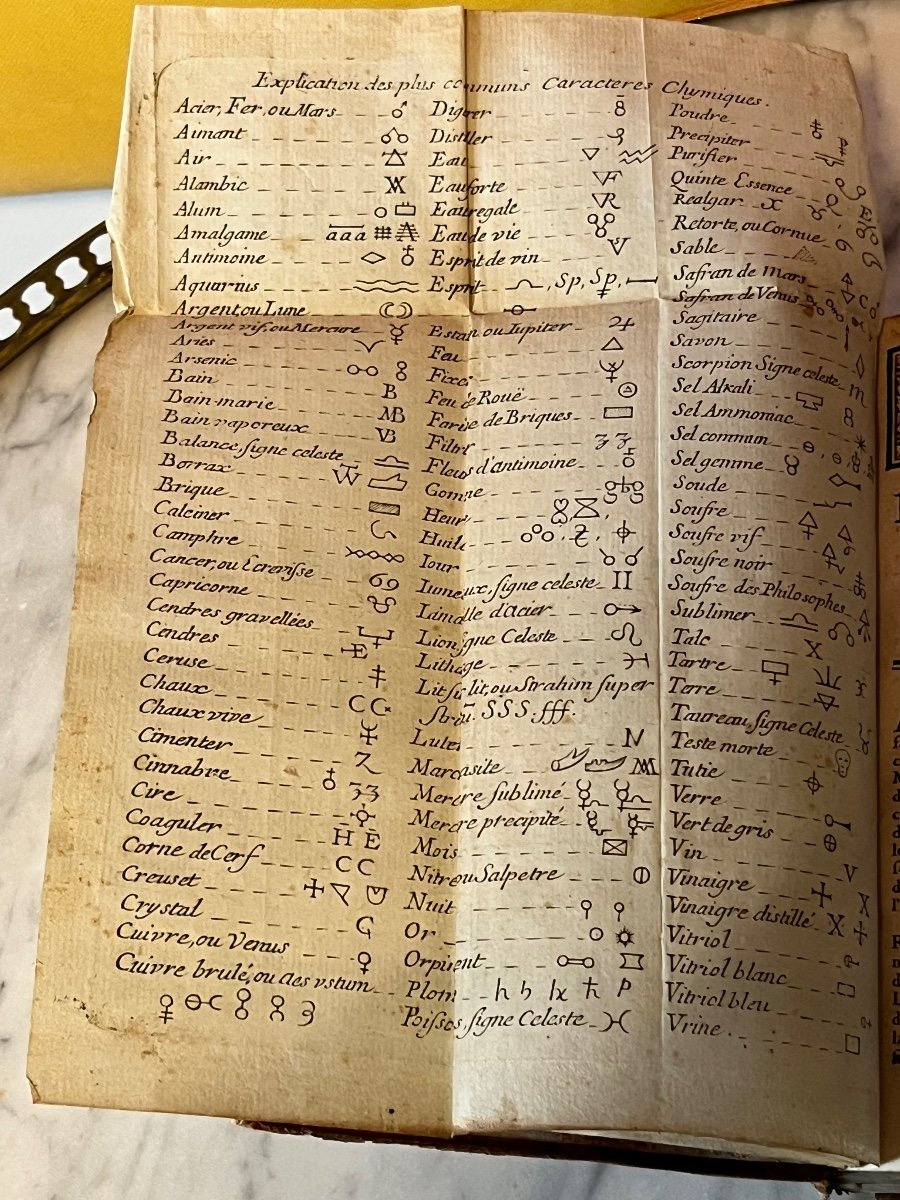 Explication des plus communs Caracteres Chymiques.
Acier, Fer, ou Mars
Aimant
Air
Alambic
Alum
Amalgame aaa
Antimoine
Aquarius
Argent ou Lune
Argent vif, ou Mercure
Aries
Arsenic
Bain B
Bain marie MB
Bain vaporeux VB
Balance, signe celeste
Borrax
Brique
Calciner
Camphre
Cancer, ou Ecrevisse
Capricorne
Cendres gravellées
Cendres E
Ceruse
Chaux C C
Chaux vive
Cimenter Z
Cinnabre 33
Cire
Coaguler H E
Corne de Cerf C C
Creuset
Crystal
Cuivre, ou Venus
Cuivre brulé, ou aes vstum
Digerer
Distiller
Eau
Eau forte
Eau regale
Eau de vie
Esprit de vin
Esprit , Sp, Sp,
Estan ou Iupiter
Feu
Fixes
Feu de Rouë
Farine de Briques
Filtrer
Fleurs d'antimoine
Gomme
Heure
Huile
Iour
Iumeaux, signe celeste
Limaille d'acier
Lion signe Celeste
Litharge
Lit sur lit, ou Strahim super
Stratū. SSS. fff.
Luter
Marcasite
Mercure sublimé
Mercure precipité
Mois
Nitre ou Salpetre
Nuit
Or
Orpiment
Plomb
Poissons, signe Celeste
Poudre
Precipiter
Purifier
Quinte Essence
Realgar
Retorte, ou Cornue
Sable
Safran de Mars
Safran de Venus
Sagitaire
Savon
Scorpion Signe celeste
Sel Alkali
Sel Ammoniac
Sel commun
Sel gemme
Soude
Soufre
Soufre vif
Soufre noir
Soufre des Philosophes
Sublimer
Talc X
Tartre
Terre
Taureau, signe Celeste
Teste morte
Tutie
Verre
Vert de gris
Vin V
Vinaigre
Vinaigre distillé
Vitriol
Vitriol blanc
Vitriol bleu
Vrine.